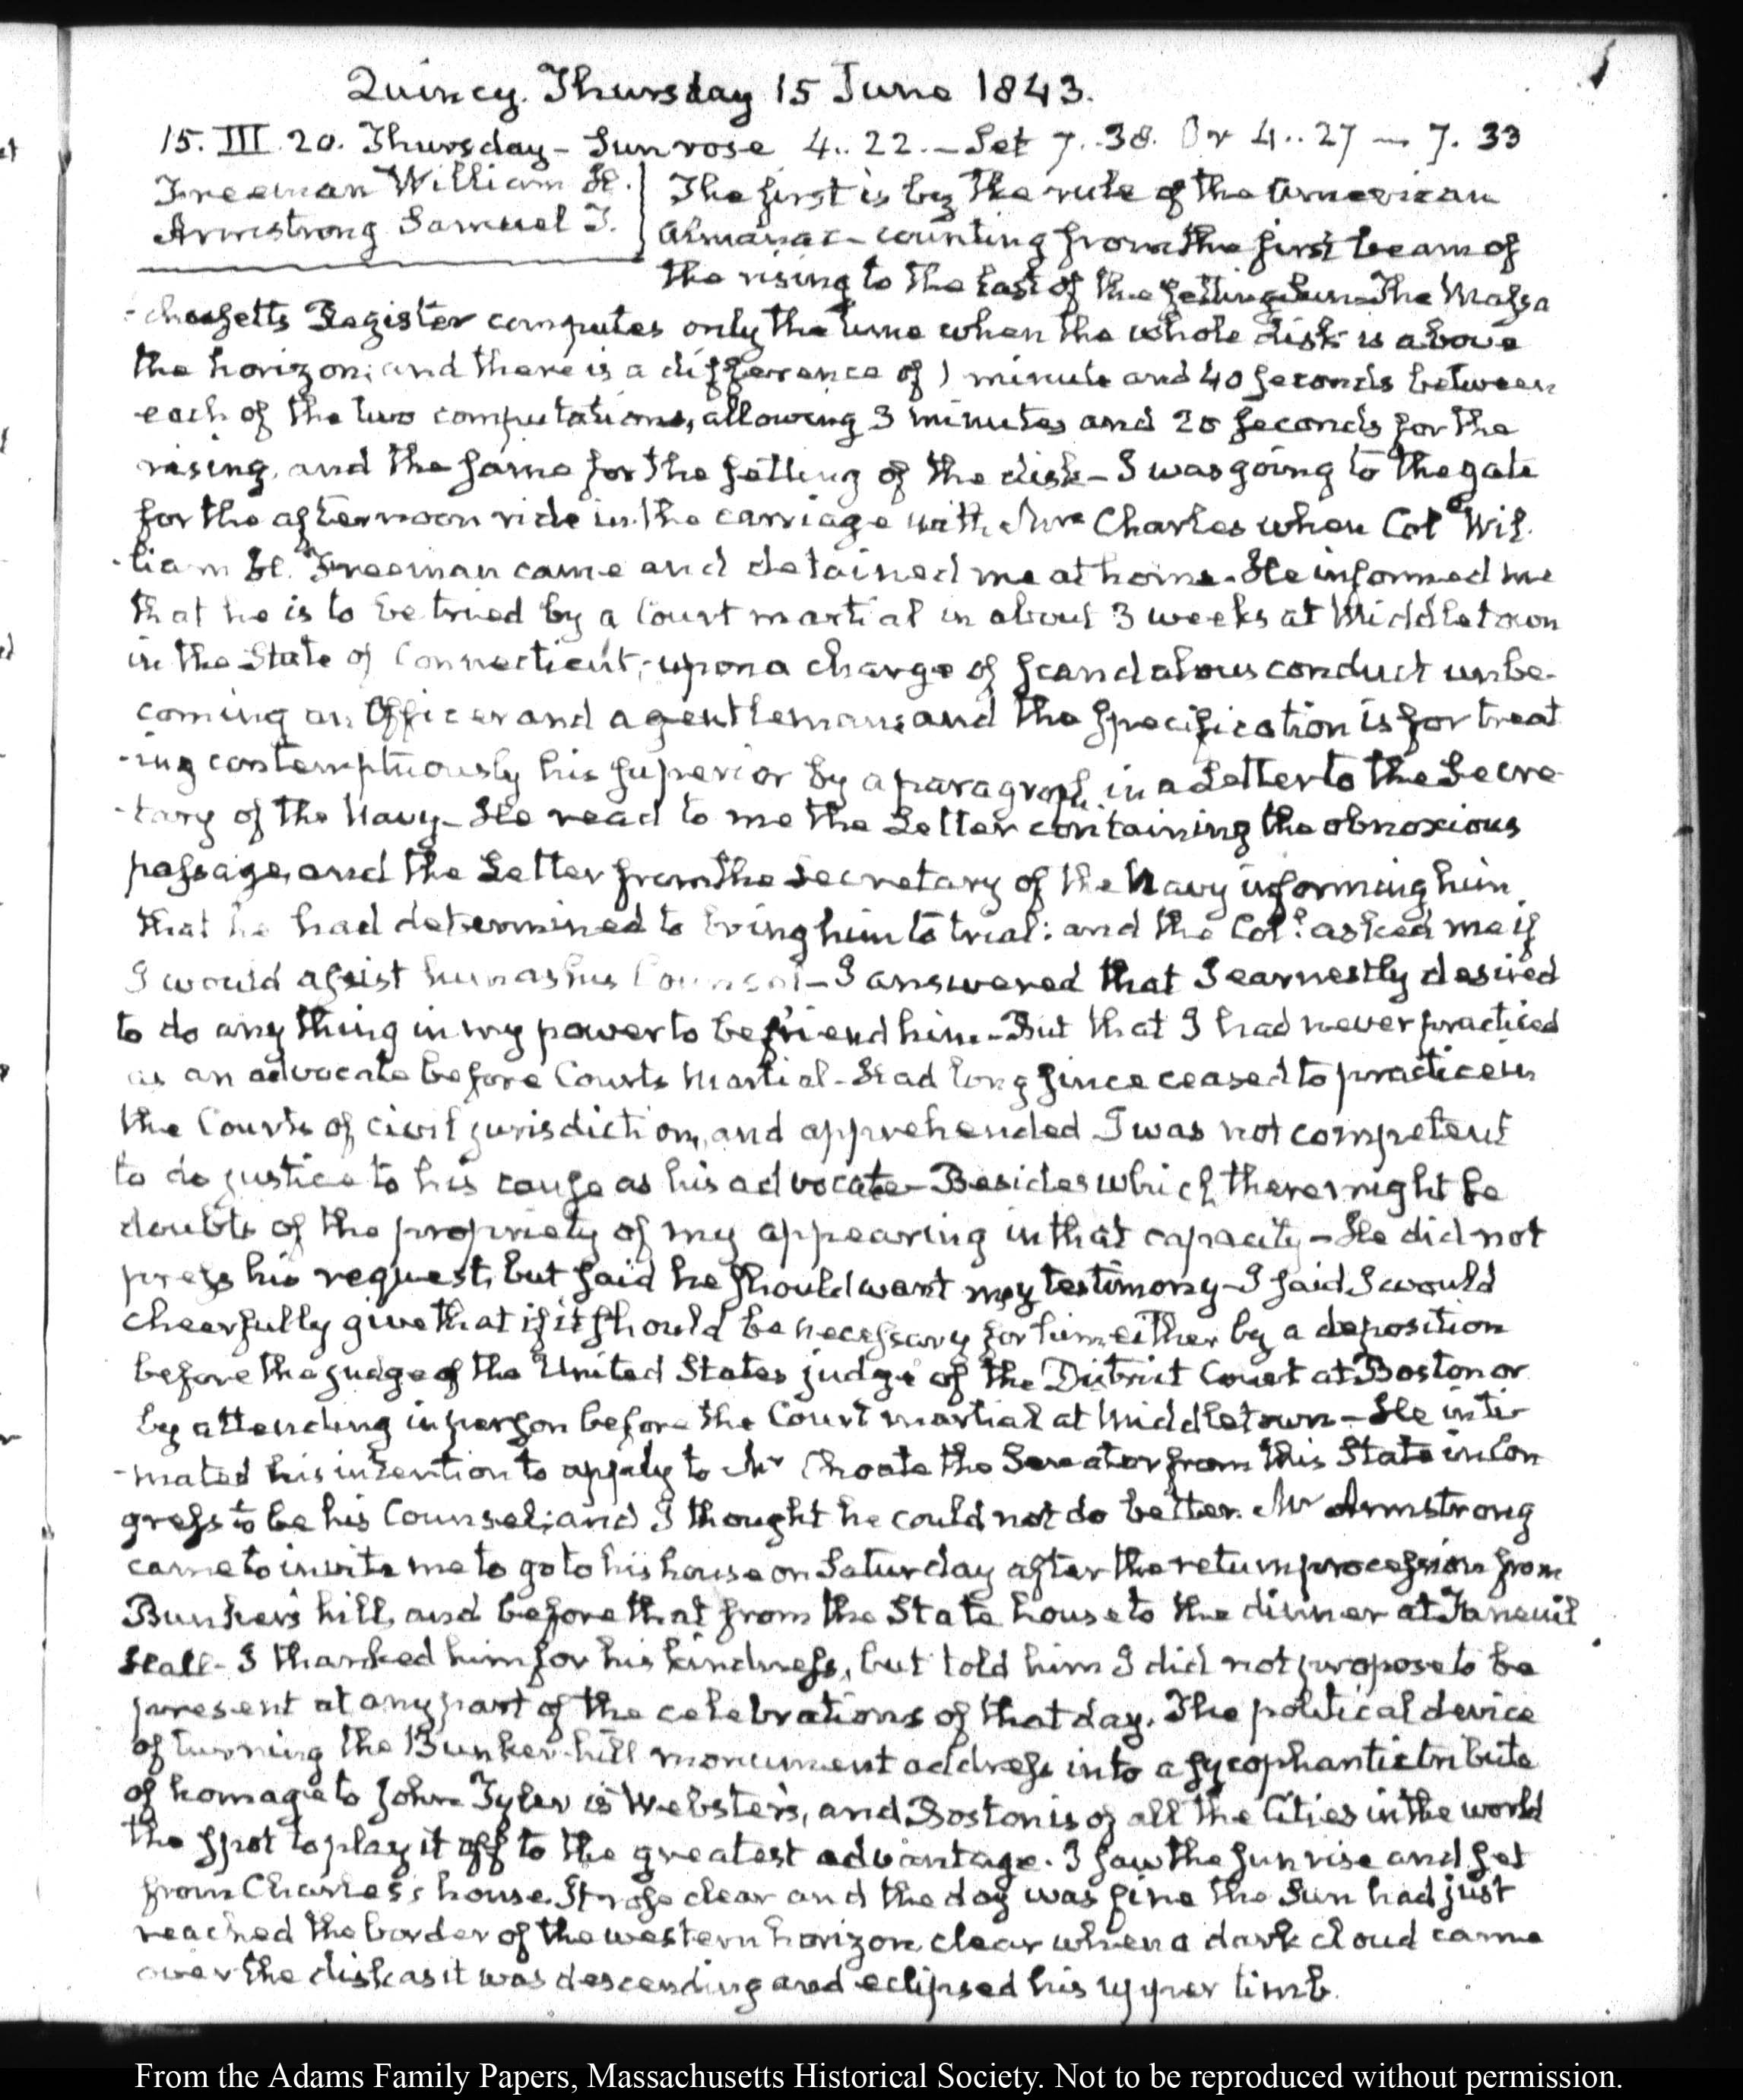 Quincy. Thursday 15 June 1843.
15. III. 20. Thursday – Sun rose 4.. 22. – Set 7. 38. Or 4.. 27 — 7. 33
Freeman William H.
Armstrong Samuel T.
The first is by the rule of the American
Almanac – counting from the first beam of
the rising to the last of the setting Sun – The Massa
-chusetts Register computes only the time when the whole disk is above
the horizon; and there is a difference of 1 minute and 40 seconds between
each of the two computations, allowing 3 minutes and 20 seconds for the
rising, and the same for the setting of the disk – I was going to the gate
for the afternoon ride in the carriage with Mrs Charles when Colel Wil-
-liam H. Freeman came and detained me at home. He informed me
that he is to be tried by a Court martial in about 3 weeks at Middletown
in the State of Connecticut; upon a charge of scandalous conduct unbe-
coming an Officer and a gentleman; and the specification is for treat
-ing contemptuously his superior by a paragraph in a Letter to the Secre-
-tary of the Navy – He read to me the Letter containing the obnoxious
passage, and the Letter from the Secretary of the Navy informing him
that he had determined to bring him to trial: and the Coll. asked me if
I would assist him as his Counsel – I answered that I earnestly desired
to do any thing in my power to befriend him – But that I had never practiced
as an advocate before Courts Martial – Had long since ceased to practice in
the Courts of civil jurisdiction, and apprehended I was not competent
to do justice to his cause as his advocate – Besides which there might be
doubts of the propriety of my appearing in that capacity – He did not
press his request, but said he should want my testimony – I said I would
cheerfully give that if it should be necessary for him either by a deposition
before the judge of the United States judge of the District Court at Boston or
by attending in person before the Court martial at Middletown – He inti-
-mated his intention to apply to Mr Choate the Senator from this State in Con
gress to be his Counsel; and I thought he could not do better. Mr Armstrong
came to invite me to go to his house on Saturday after the return procession from
Bunker's hill, and before that from the State house to the dinner at Faneuil
Hall – I thanked him for his kindness, but told him I did not propose to be
present at any part of the celebrations of that day. The political device
of turning the Bunker-hill monument address into a sycophantic tribute
of homage to John Tyler is Webster's, and Boston is of all the Cities in the world
the spot to play it off to the greatest advantage. I saw the sun rise and set
from Charles's house. It rose clear and the day was fine the Sun had just
reached the border of the western horizon clear when a dark cloud came
over the disk as it was descending and eclipsed his upper limb.
From the Adams Family Papers, Massachusetts Historical Society. Not to be reproduced without permission.